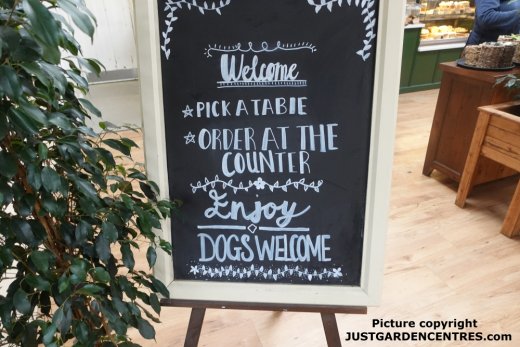 Welcome
PICK A TABLE
ORDER AT THE
COUNTER
Enjoy
DOGS WELCOME
Picture copyright
JUSTGARDENCENTRES.com